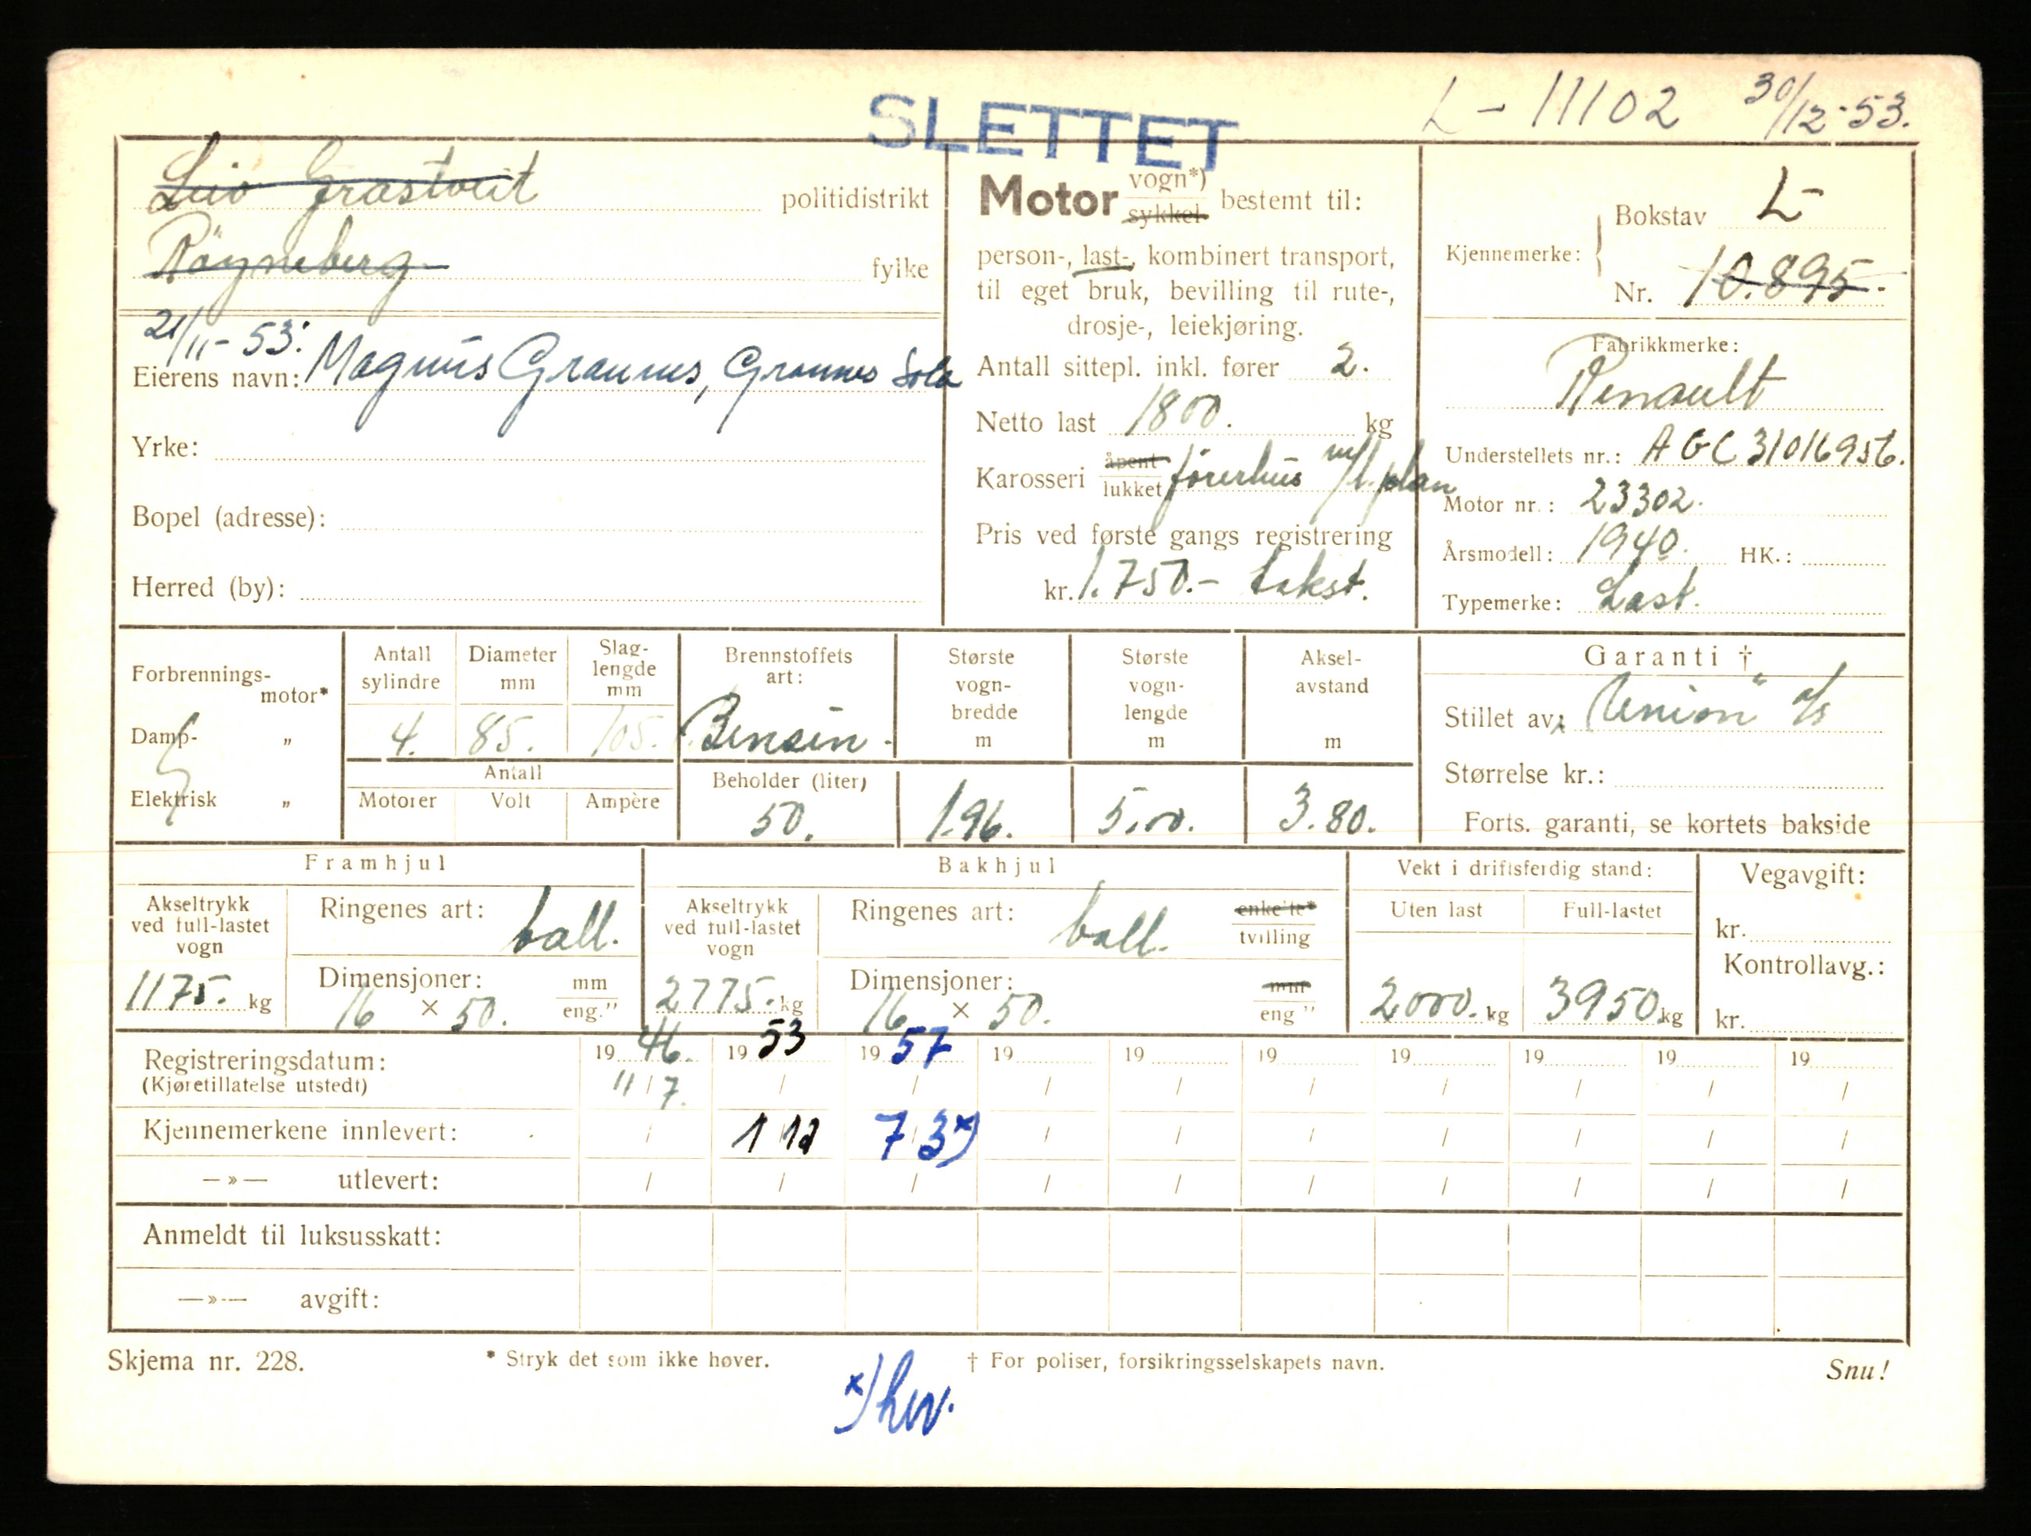 L - 11102 30/12-53.
SLETTET
Leiv Grastveit politidistrikt
Røyneberg fylke
21/11-53:
Eierens navn: Magnus Grannes, Grannes Sola
Yrke:
Bopel (adresse):
Herred (by):
Motor vogn*) sykkel bestemt til:
person-, last-, kombinert transport,
til eget bruk, bevilling til rute-,
drosje-, leiekjøring.
Antall sittepl. inkl. fører 2.
Netto last 1800. kg
Karosseri åpent lukket førerhus m/l. plan
Pris ved første gangs registrering
kr. 1.750.- takst.
Kjennemerke: Bokstav L-
Nr. 10.895.
Fabrikkmerke:
Renault
Understellets nr.: AGC 31016956.
Motor nr.: 23302.
Årsmodell: 1940. HK.:
Typemerke: Last.
Forbrennings-motor*
Damp- „
Elektrisk „
Antall sylindre 4.
Diameter mm 85.
Slaglengde mm 105.
Antall
Motorer Volt Ampère
Brennstoffets art: Bensin.
Beholder (liter) 50.
Største vogn-bredde m 1.96.
Største vogn-lengde m 5.00.
Aksel-avstand m 3.80.
Garanti †
Stillet av: "Union" a/s
Størrelse kr.:
Forts. garanti, se kortets bakside
Framhjul
Akseltrykk ved full-lastet vogn 1175. kg
Ringenes art: ball.
Dimensjoner: 16 × 50. mm eng."
Bakhjul
Akseltrykk ved full-lastet vogn 2775. kg
Ringenes art: ball. enkelte* tvilling
Dimensjoner: 16 × 50. mm eng "
Vekt i driftsferdig stand:
Uten last Full-lastet
2000. kg 3950 kg
Vegavgift:
kr.
Kontrollavg.:
kr.
Registreringsdatum: 1946. 1953 1957 19 19 19 19 19 19 19
(Kjøretillatelse utstedt) 11/7. / / / / / / / / /
Kjennemerkene innlevert: / 1/12 7/3 x) / / / / / / /
—»— utlevert: / / / / / / / / / /
Anmeldt til luksusskatt:
—»— avgift:
Skjema nr. 228. * Stryk det som ikke høver. † For poliser, forsikringsselskapets navn. Snu!
x) hev.